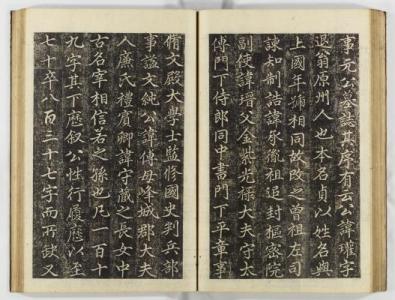 事元公墓誌其序有云公諱瓘字
退翁原州人也本名貞以姓名與
上國年號相同故改之曾祖左司
諫知制誥諱承孫祖追封樞密院
副使諱瑨父金紫光祿大夫守太
傅門下侍郎同中書門下平章事
脩文殿大學士監修國史判兵部
事謚文純公諱傅母峰城郡大夫
人廉氏禮賓卿諱守藏之長女中
古名宰相信若之孫也凡一百十
九字其下歷叙公性行履歷以至
七十卒八百三十七字而所缺又